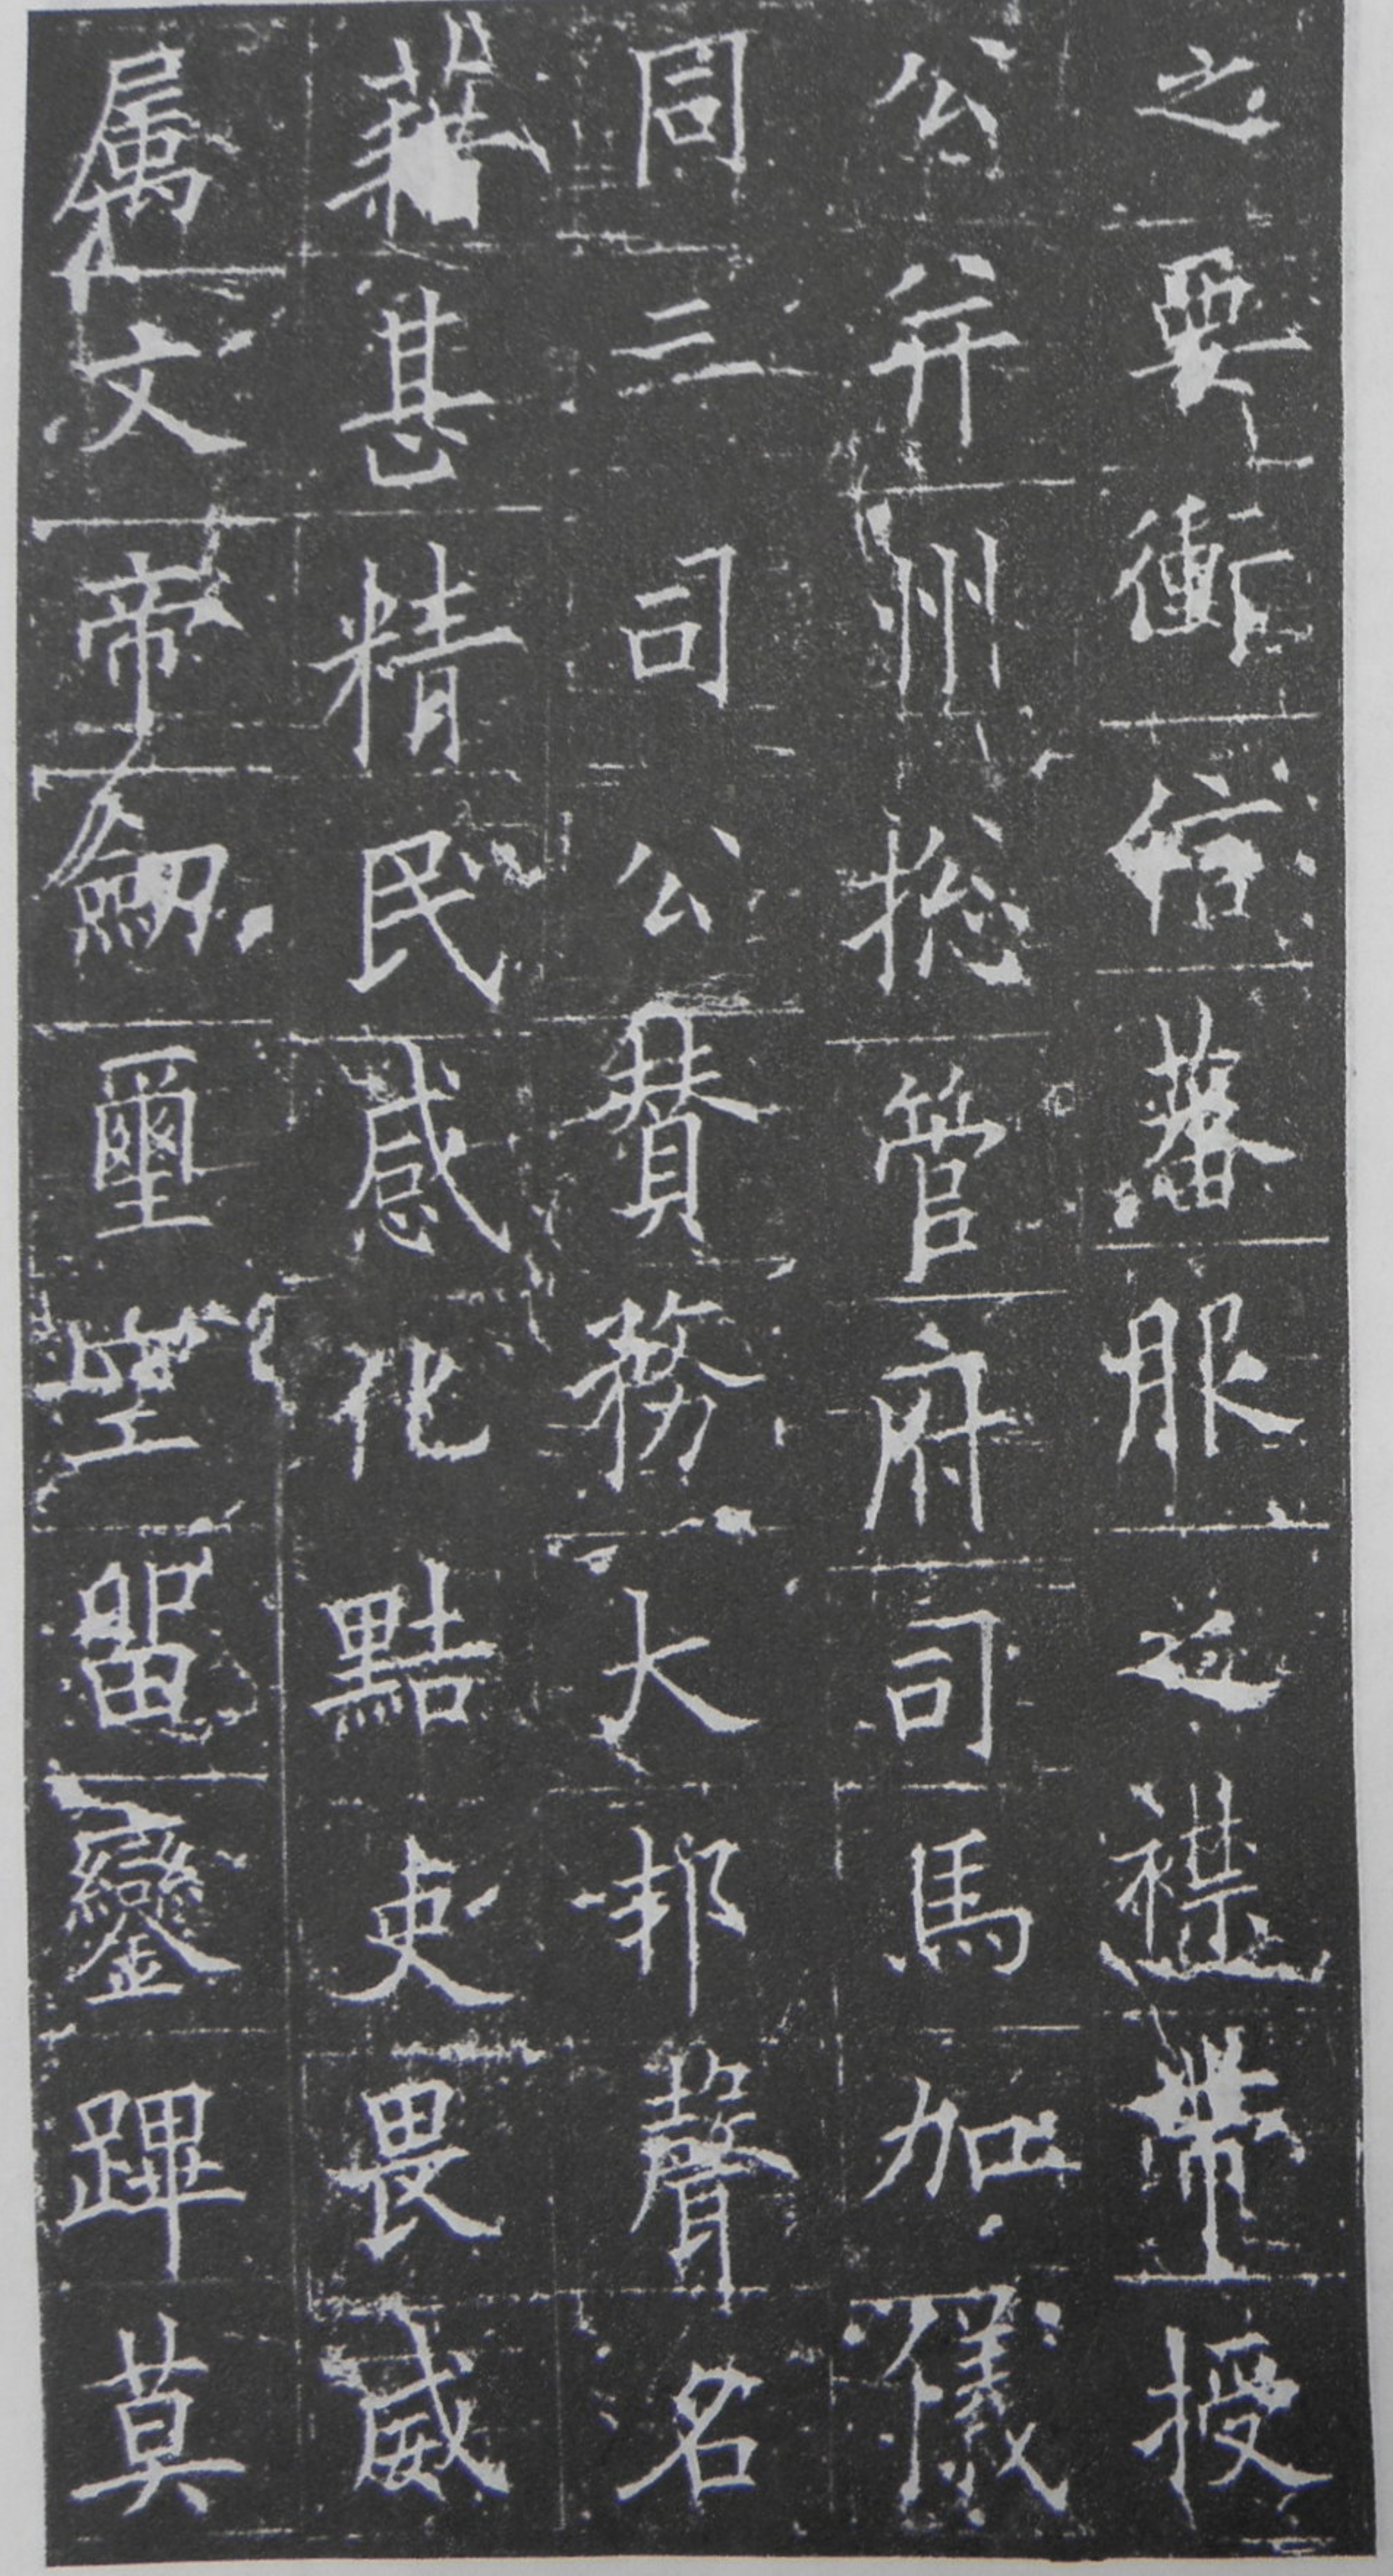 之要衝信蕃服之襟帶授
公并州揔管府司馬加儀
同三司公賛務大邦聲名
藉甚精民感化黠吏畏威
属文帝劒璽空留鑾蹕莫